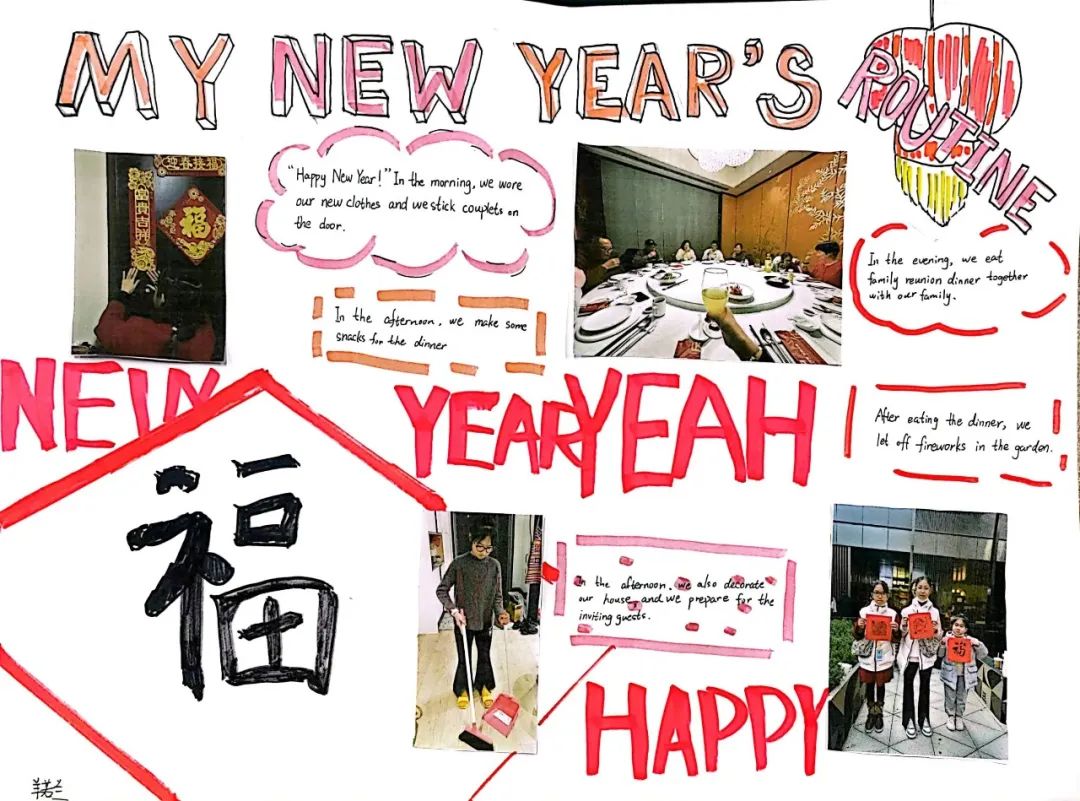 MY NEW YEAR'S ROUTINE
迎春接福
富貴吉祥
福
"Happy New Year!" In the morning, we wore
our new clothes and we stick couplets on
the door.
In the afternoon, we make some
snacks for the dinner
In the evening, we eat
family reunion dinner together
with our family.
NEW YEAR YEAH
After eating the dinner, we
let off fireworks in the garden.
福
In the afternoon, we also decorate
our house and we prepare for the
inviting guests.
福
HAPPY